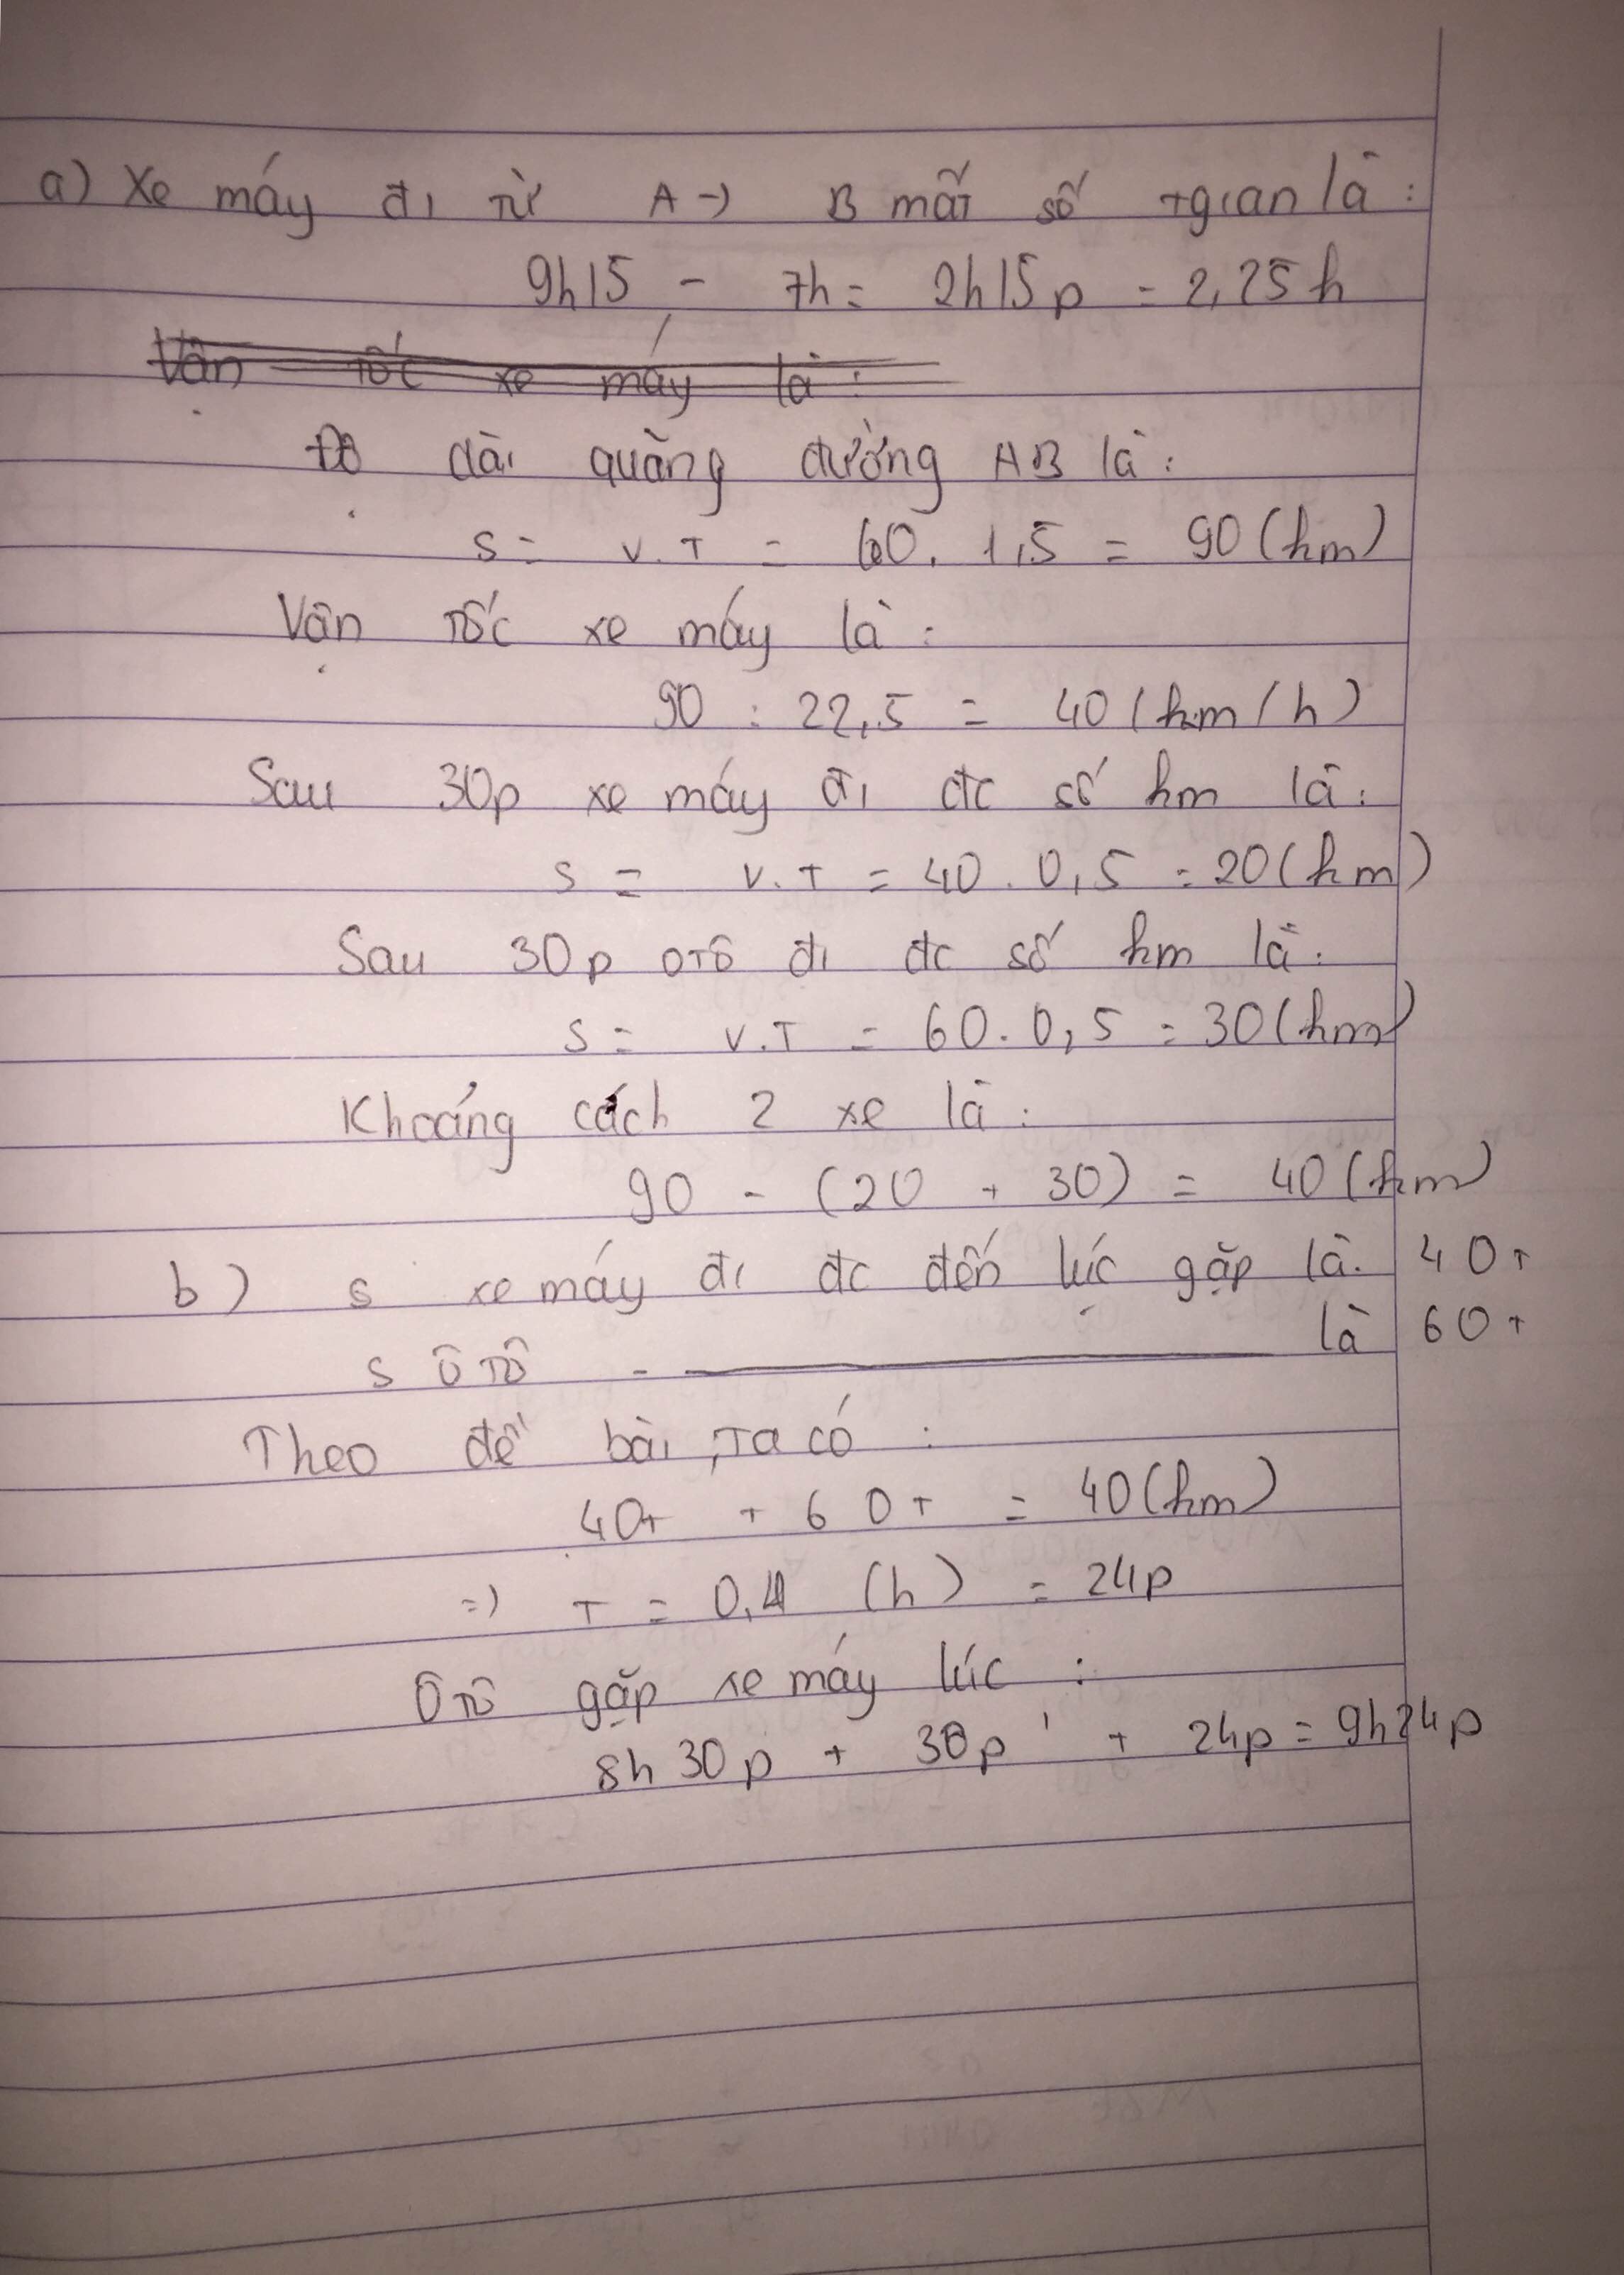 a) Xe máy đi từ A → B mất số tgian là :
9h15 - 7h = 2h15p = 2,25h
Vận tốc xe máy là :
Độ dài quãng đường AB là :
s = v.t = 60. 1,5 = 90 (km)
Vận tốc xe máy là :
90 : 22,5 = 40 (km/h)
Sau 30p xe máy đi đc số km là :
s = v.t = 40 . 0,5 = 20 (km)
Sau 30p ôtô đi đc số km là :
s = v.t = 60. 0,5 = 30 (km)
Khoảng cách 2 xe là :
90 - (20 + 30) = 40 (km)
b) s xe máy đi đc đến lúc gặp là. 40t
s ô tô - ——— là 60t
Theo đề bài, ta có :
40t + 60t = 40 (km)
=> t = 0,4 (h) = 24p
Ô tô gặp xe máy lúc :
8h30p + 30p + 24p = 9h24p